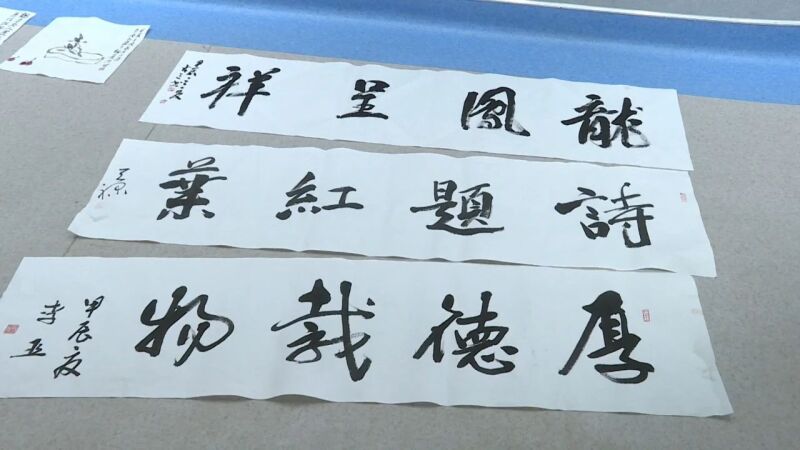 龍鳳呈祥
詩題紅葉
厚德載物
甲辰夏
李亚